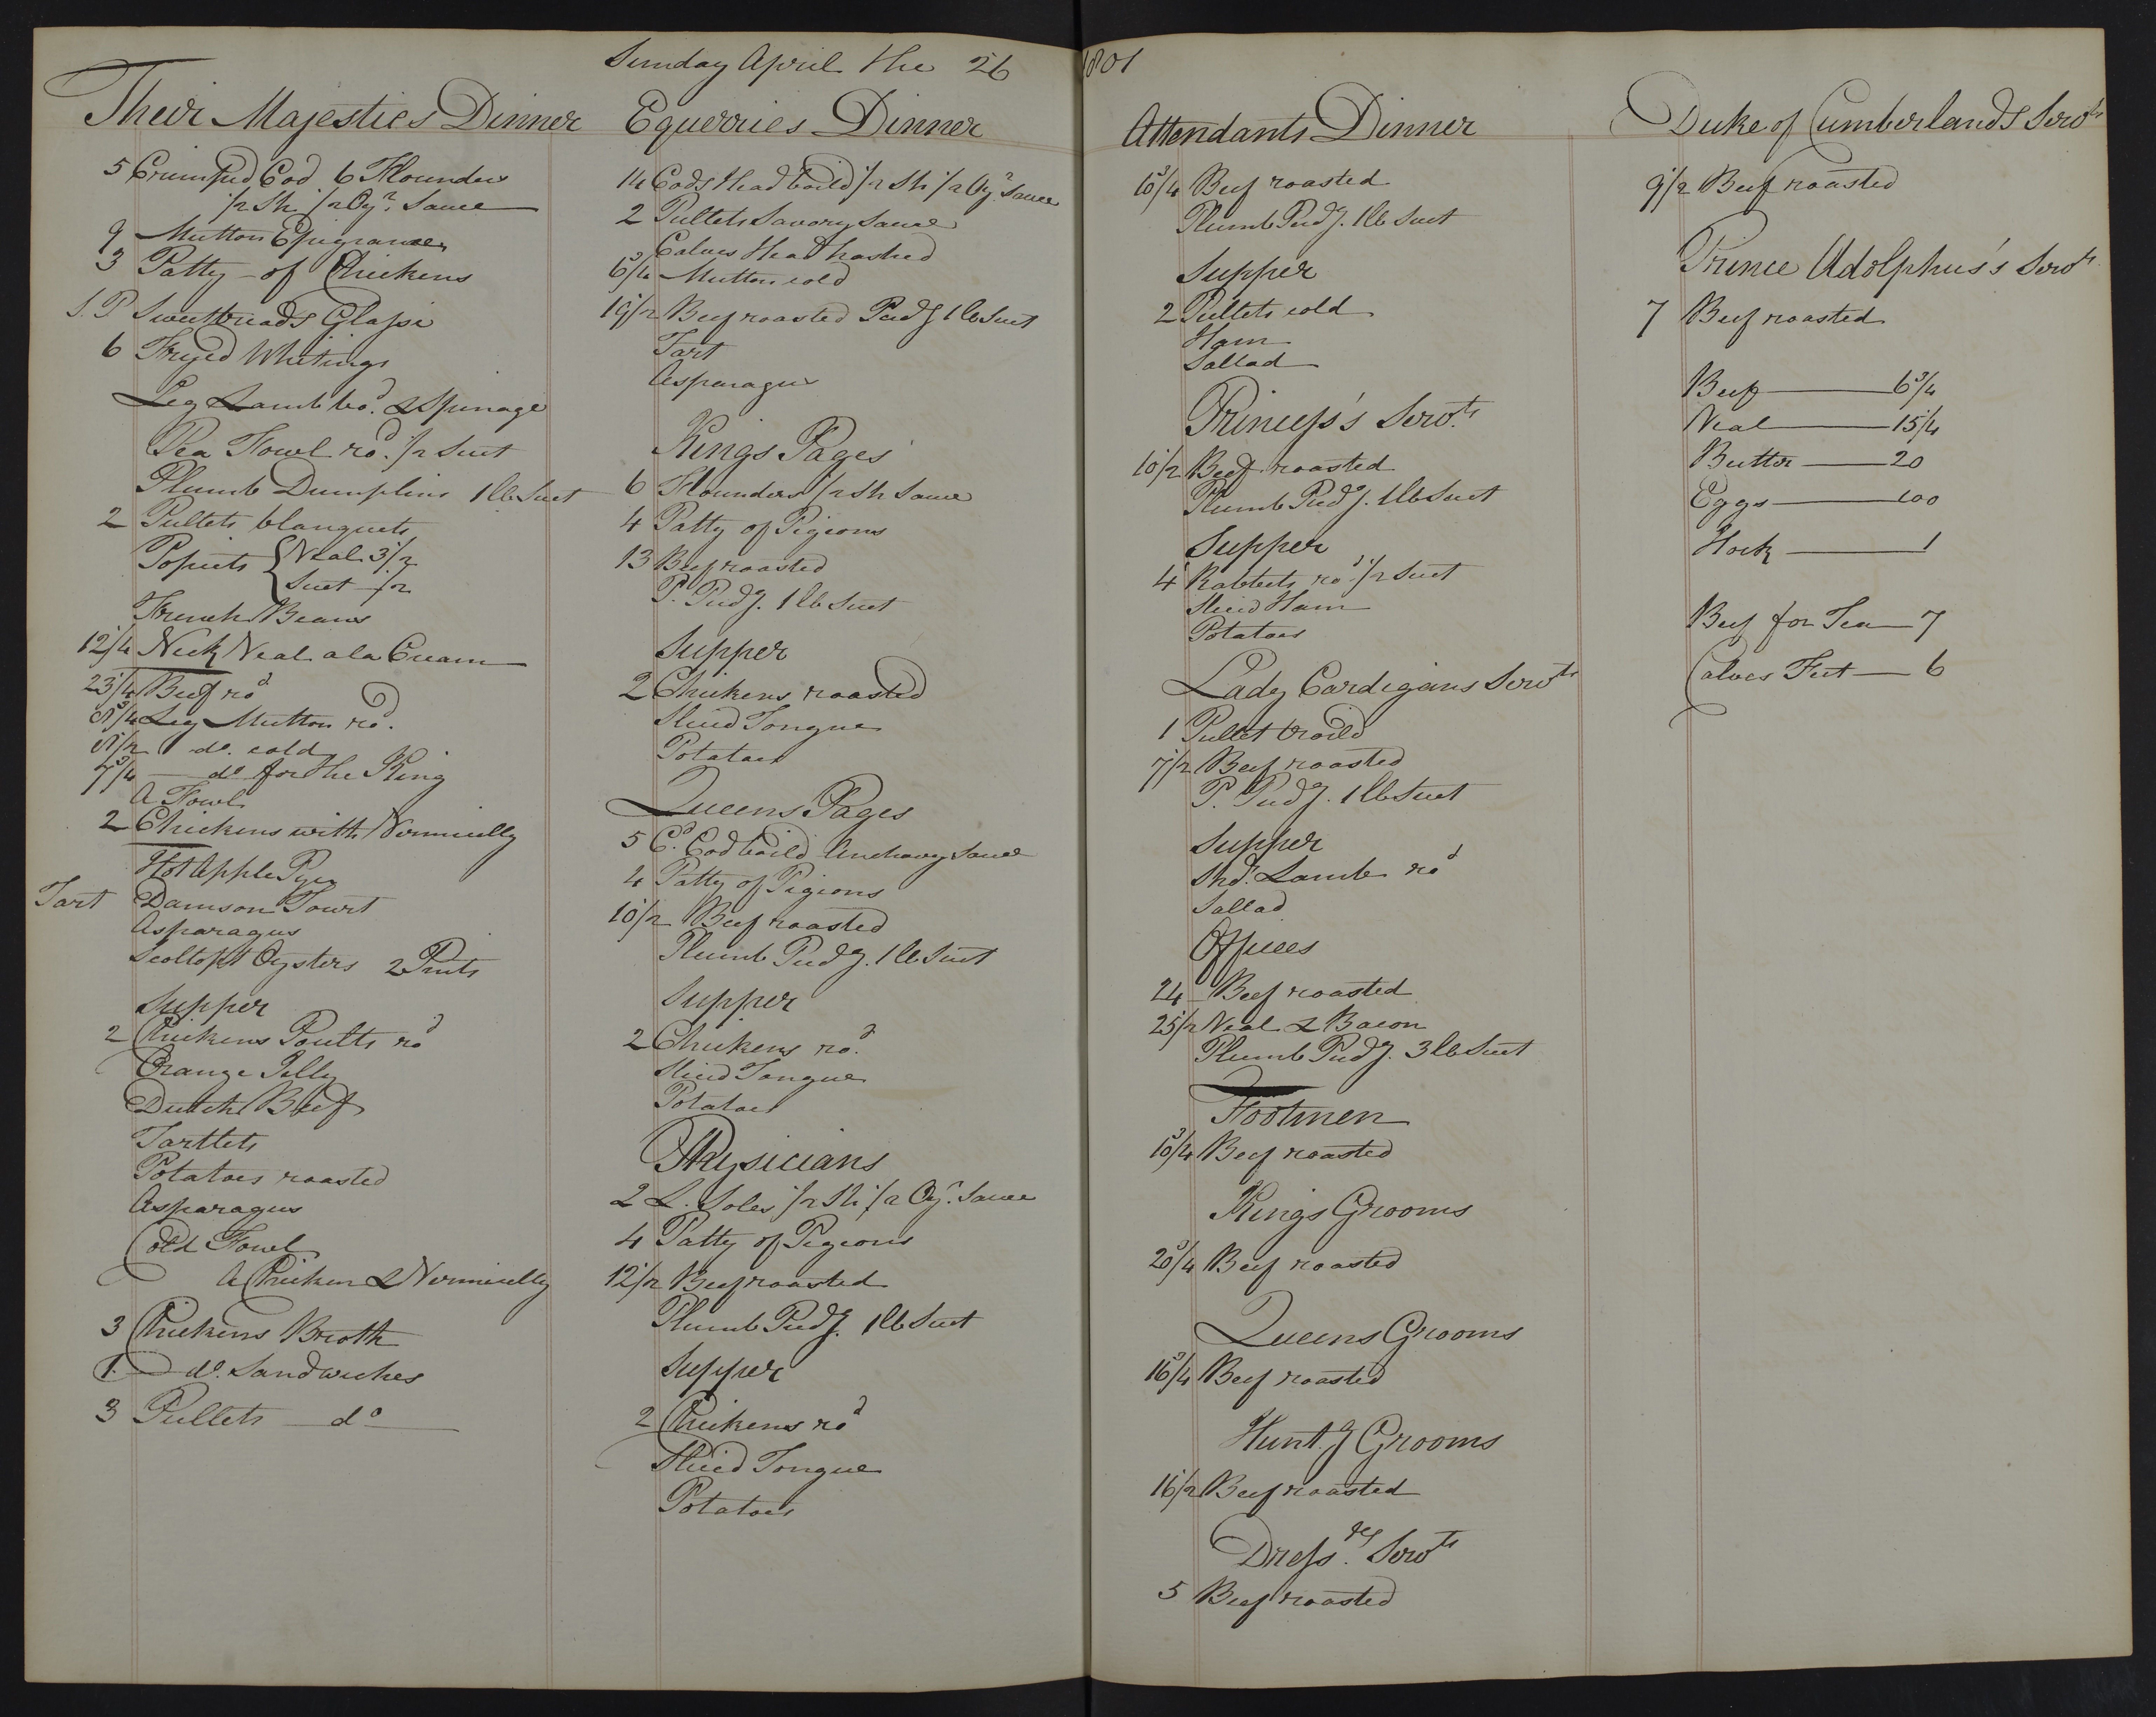 Sunday April the 26 1801
Their Majesties Dinner
5 Crimped Cod 6 Flounders
1/2 Sh 1/2 Oyr. Sauce
9 Mutton Epigrames
3 Patty of Chickens
S.P Sweetbreads Glasse
6 Fryed Whitings
Leg Lamb bod. & Spinage
Pea Fowl rod. 1/2 Suet
Plumb Dumplins 1 lb Suet
2 Pullets blanquets
Popiets { Veal 3 1/2
Suet 1/2
French Beans
12 1/4 Neck Veal a la Cream
23 1/4 Beef rod
8 3/4 Leg Mutton rod.
8 1/2 do. cold
7 3/4 do for the King
A Fowl
2 Chickens with Vermicelly
Hot Apple Pye
Tart Damson Tourt
Asparagus
Scollopt Oysters 2 Pints
Supper
2 Chickens Poults rod
Orange Jelly
Dutch Beef
Tartlets
Potatoes roasted
Asparagus
Cold Fowl
A Chicken & Vermicelly
3 Chickens Broth
1 do. Sandwiches
3 Pullets do
Equerries Dinner
14 Cods Head boild 1/2 Sh 1/2 Oyr. Sauce
2 Pullets Savory Sauce
Calves Head hashed
6 3/4 Mutton cold
19 1/2 Beef roasted Pudg 1 lb Suet
Tart
Asparagus
Kings Pages
6 Flounders 1/2 Sh Sauce
4 Patty of Pigeons
13 Beef roasted
P. Pudg. 1 lb Suet
Supper
2 Chickens roasted
Sliced Tongue
Potatoes
Queens Pages
5 Cd. Cod boild Anchovy Sauce
4 Patty of Pigeons
10 1/2 Beef roasted
Plumb Pudg. 1 lb Suet
Supper
2 Chickens rod.
Sliced Tongue
Potatoes
Physicians
2 L. Soles 1/2 Sh 1/2 Oyr. Sauce
4 Patty of Pigeons
12 1/2 Beef roasted
Plumb Pudg. 1 lb Suet
Supper
2 Chickens rod
Sliced Tongue
Potatoes
Attendants Dinner
10 3/4 Beef roasted
Plumb Pudg. 1 lb Suet
Supper
2 Pullets cold
Ham
Sallad
Princess's Servts
10 1/2 Beef roasted
Plumb Pudg. 1 lb Suet
Supper
4 Rabbets rod 1/2 Suet
Sliced Ham
Potatoes
Lady Cardigans Servts
1 Pullet broild
7 1/2 Beef roasted
P. Pudg. 1 lb Suet
Supper
Shdr. Lamb rod
Sallad
Offices
24 Beef roasted
25 1/2 Veal & Bacon
Plumb Pudg. 3 lb Suet
Footmen
10 3/4 Beef roasted
Kings Grooms
20 3/4 Beef roasted
Queens Grooms
16 3/4 Beef roasted
Hunt.g Grooms
16 1/2 Beef roasted
Dress. Servts
5 Beef roasted
Duke of Cumberlands Servts
9 1/2 Beef roasted
Prince Adolphus's Servts.
7 Beef roasted
Beef 6 3/4
Veal 15 1/4
Butter 20
Eggs 100
Hock 1
Beef for Tea 7
Calves Feet 6